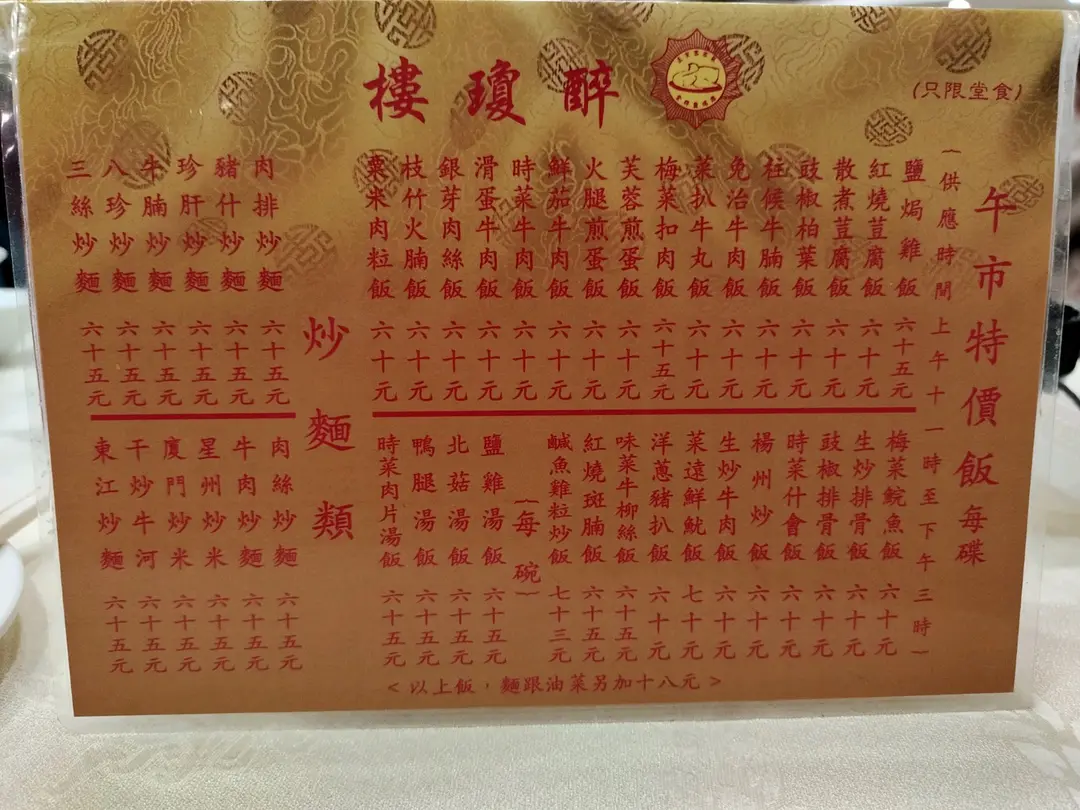 醉瓊樓
(只限堂食)
午市特價飯每碟
(供應時間上午十一時至下午三時)
鹽焗雞飯 六十五元
紅燒荳腐飯 六十元
散煮荳腐飯 六十元
豉椒柏葉飯 六十元
柱候牛腩飯 六十元
免治牛肉飯 六十元
菜扒牛丸飯 六十元
梅菜扣肉飯 六十五元
芙蓉煎蛋飯 六十元
火腿煎蛋飯 六十元
鮮茄牛肉飯 六十元
時菜牛肉飯 六十元
滑蛋牛肉飯 六十元
銀芽肉絲飯 六十元
枝竹火腩飯 六十元
粟米肉粒飯 六十元
梅菜鯇魚飯 六十元
生炒排骨飯 六十元
豉椒排骨飯 六十元
時菜什會飯 六十元
楊州炒飯 六十元
生炒牛肉飯 六十元
菜遠鮮魷飯 七十元
洋蔥豬扒飯 六十元
味菜牛柳絲飯 六十五元
紅燒斑腩飯 六十五元
鹹魚雞粒炒飯 七十三元
(每碗)
鹽雞湯飯 六十五元
北菇湯飯 六十五元
鴨腿湯飯 六十五元
時菜肉片湯飯 六十五元
炒麵類
肉排炒麵 六十五元
豬什炒麵 六十五元
珍肝炒麵 六十五元
牛腩炒麵 六十五元
八珍炒麵 六十五元
三絲炒麵 六十五元
肉絲炒麵 六十五元
牛肉炒麵 六十五元
星州炒米 六十五元
廈門炒米 六十五元
干炒牛河 六十五元
東江炒麵 六十五元
<以上飯，麵跟油菜另加十八元>